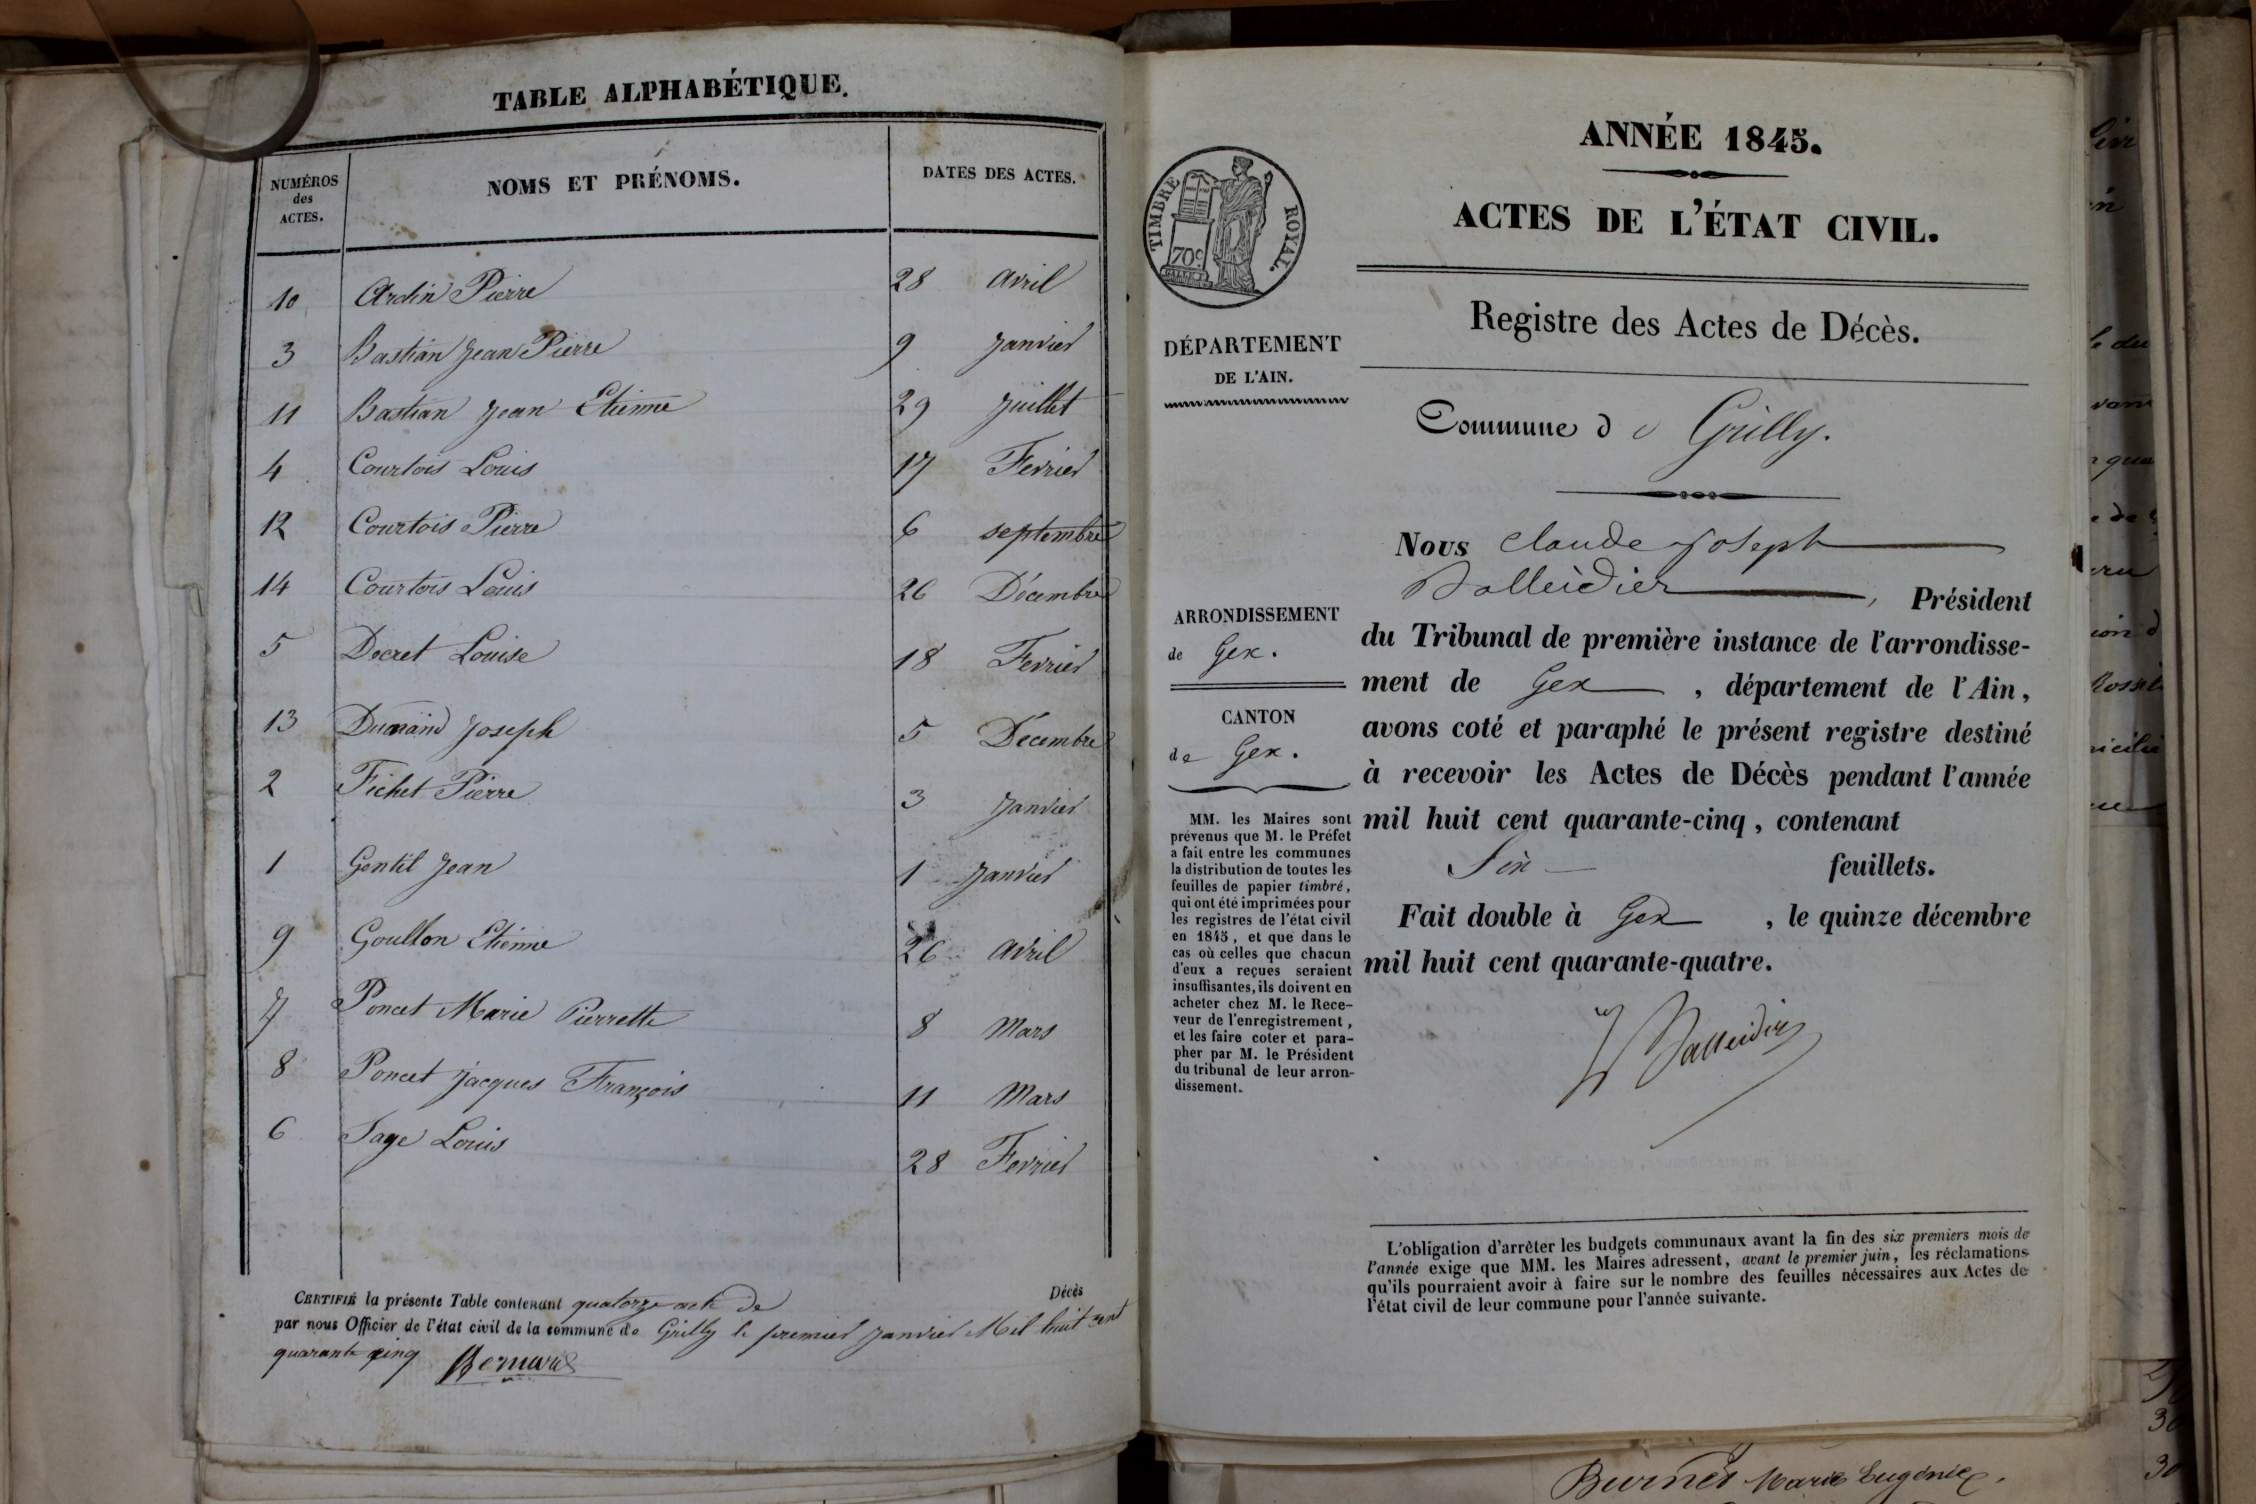 TABLE ALPHABÉTIQUE.
NUMÉROS
des
ACTES.
NOMS ET PRÉNOMS.
DATES DES ACTES.
10 Ardin Pierre 28 avril
3 Bastian Jean Pierre 9 Janvier
11 Bastian Jean Etienne 29 Juillet
4 Courtois Louis 17 Fevrier
12 Courtois Pierre 6 septembre
14 Courtois Louis 26 Décembre
5 Decret Louise 18 Fevrier
13 Durand Joseph 5 Décembre
2 Fichet Pierre 3 Janvier
1 Gentil Jean 1 Janvier
9 Goullon Etienne 26 avril
7 Poncet Marie Pierrette 8 Mars
8 Poncet Jacques François 11 Mars
6 Sage Louis 28 Fevrier
CERTIFIÉ la présente Table contenant quatorze acte de Décès
par nous Officier de l'état civil de la commune de Grilly le premier Janvier Mil huit cent
quarante cinq Bernard
ANNÉE 1845.
ACTES DE L'ÉTAT CIVIL.
TIMBRE ROYAL.
70c
Registre des Actes de Décès.
DÉPARTEMENT
DE L'AIN.
Commune de Grilly.
ARRONDISSEMENT
de Gex.
CANTON
de Gex.
MM. les Maires sont
prévenus que M. le Préfet
a fait entre les communes
la distribution de toutes les
feuilles de papier timbré,
qui ont été imprimées pour
les registres de l'état civil
en 1845, et que dans le
cas où celles que chacun
d'eux a reçues seraient
insuffisantes, ils doivent en
acheter chez M. le Rece-
veur de l'enregistrement,
et les faire coter et para-
pher par M. le Président
du tribunal de leur arron-
dissement.
Nous Claude Joseph
Balleidier, Président
du Tribunal de première instance de l'arrondisse-
ment de Gex, département de l'Ain,
avons coté et paraphé le présent registre destiné
à recevoir les Actes de Décès pendant l'année
mil huit cent quarante-cinq, contenant
Six feuillets.
Fait double à Gex, le quinze décembre
mil huit cent quarante-quatre.
Balleidier
L'obligation d'arrêter les budgets communaux avant la fin des six premiers mois de
l'année exige que MM. les Maires adressent, avant le premier juin, les réclamations
qu'ils pourraient avoir à faire sur le nombre des feuilles nécessaires aux Actes de
l'état civil de leur commune pour l'année suivante.
Marie Eugénie.